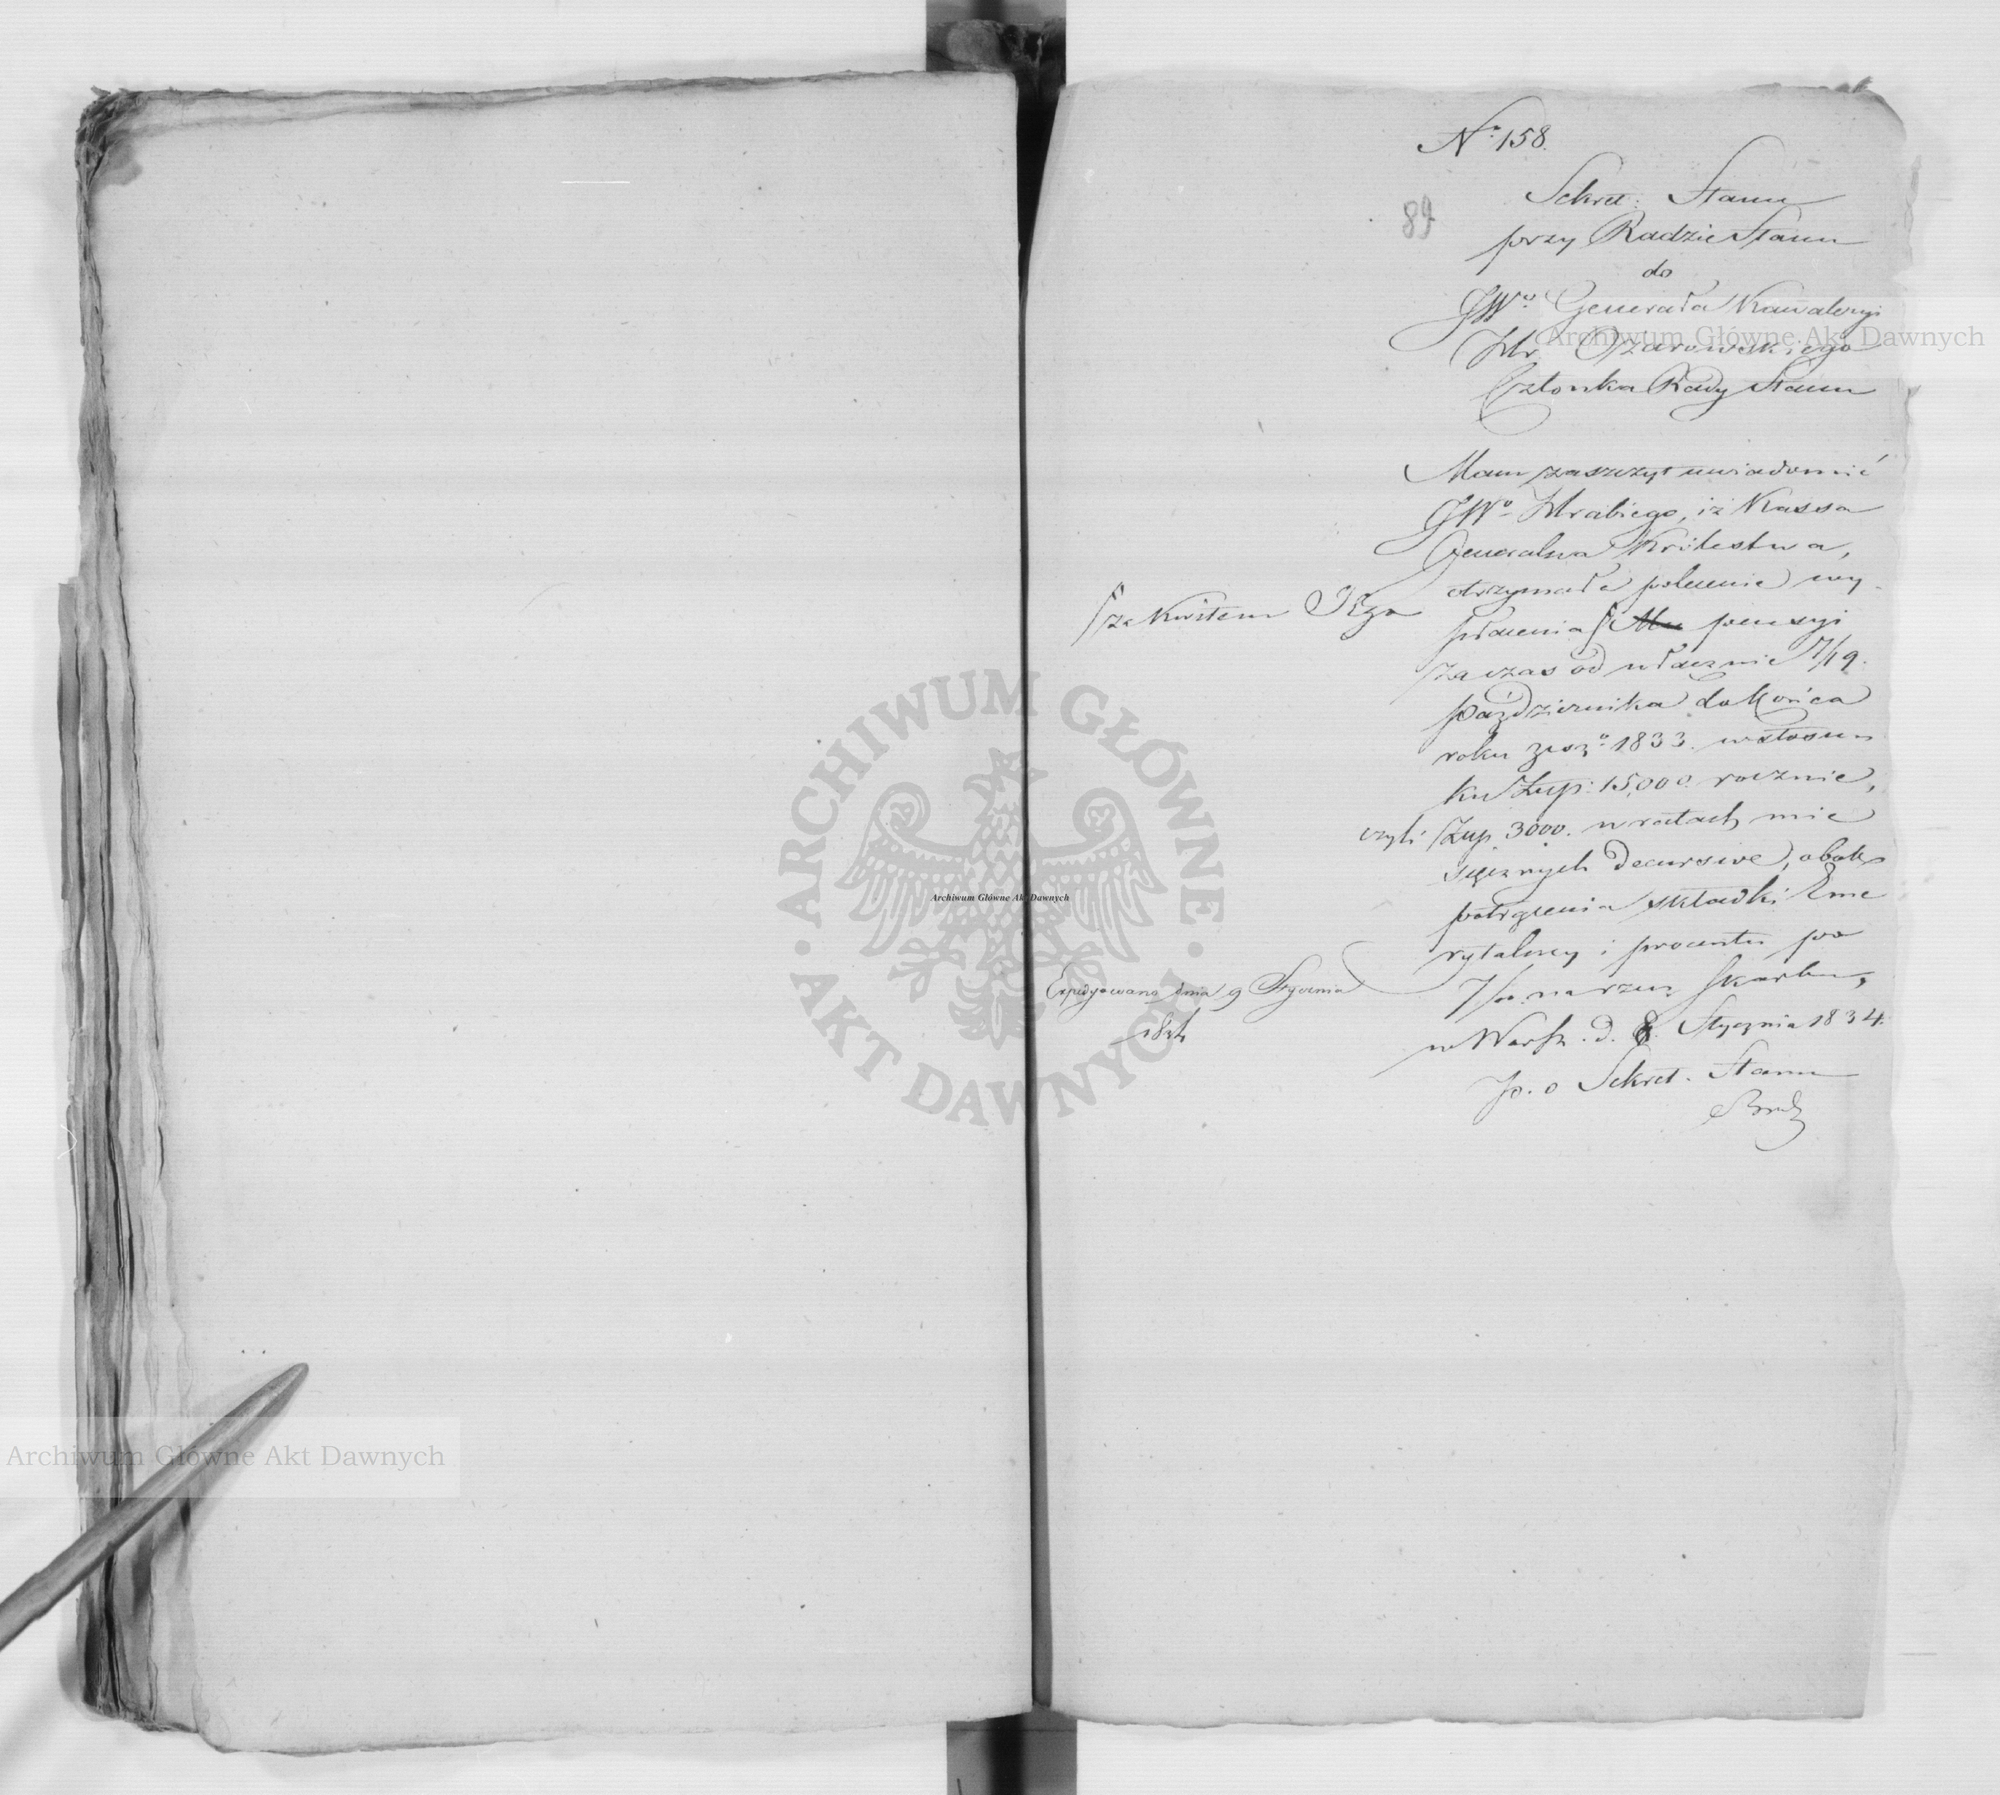 No 158.
89
Sekret: Stanu
przy Radzie Stanu
do
JWo Generała Kawaleryi
Hr. Ożarowskiego
Członka Rady Stanu
Mam zaszczyt uwiadomić
JWo Hrabiego, iż Kassa
Generalna Królestwa,
otrzymała polecenie wy-
płacenia pensyi
za kwitem Jego
za czas od włącznie 7/19.
Października do końca
roku zesz. 1833. w stosun
ku Złup: 15,000. rocznie,
czyli Złup. 3000. w ratach mie
sięcznych decursive, obok
potrącenia składki Eme
rytalney i procentu po
na rzecz Skarbu,
w Warsz. d. 8. Stycznia 1834.
p. o Sekret. Stanu
Expedyowano dnia 9 Stycznia
1834
Archiwum Główne Akt Dawnych
Archiwum Główne Akt Dawnych
Archiwum Główne Akt Dawnych
ARCHIWUM GŁÓWNE • AKT DAWNYCH •